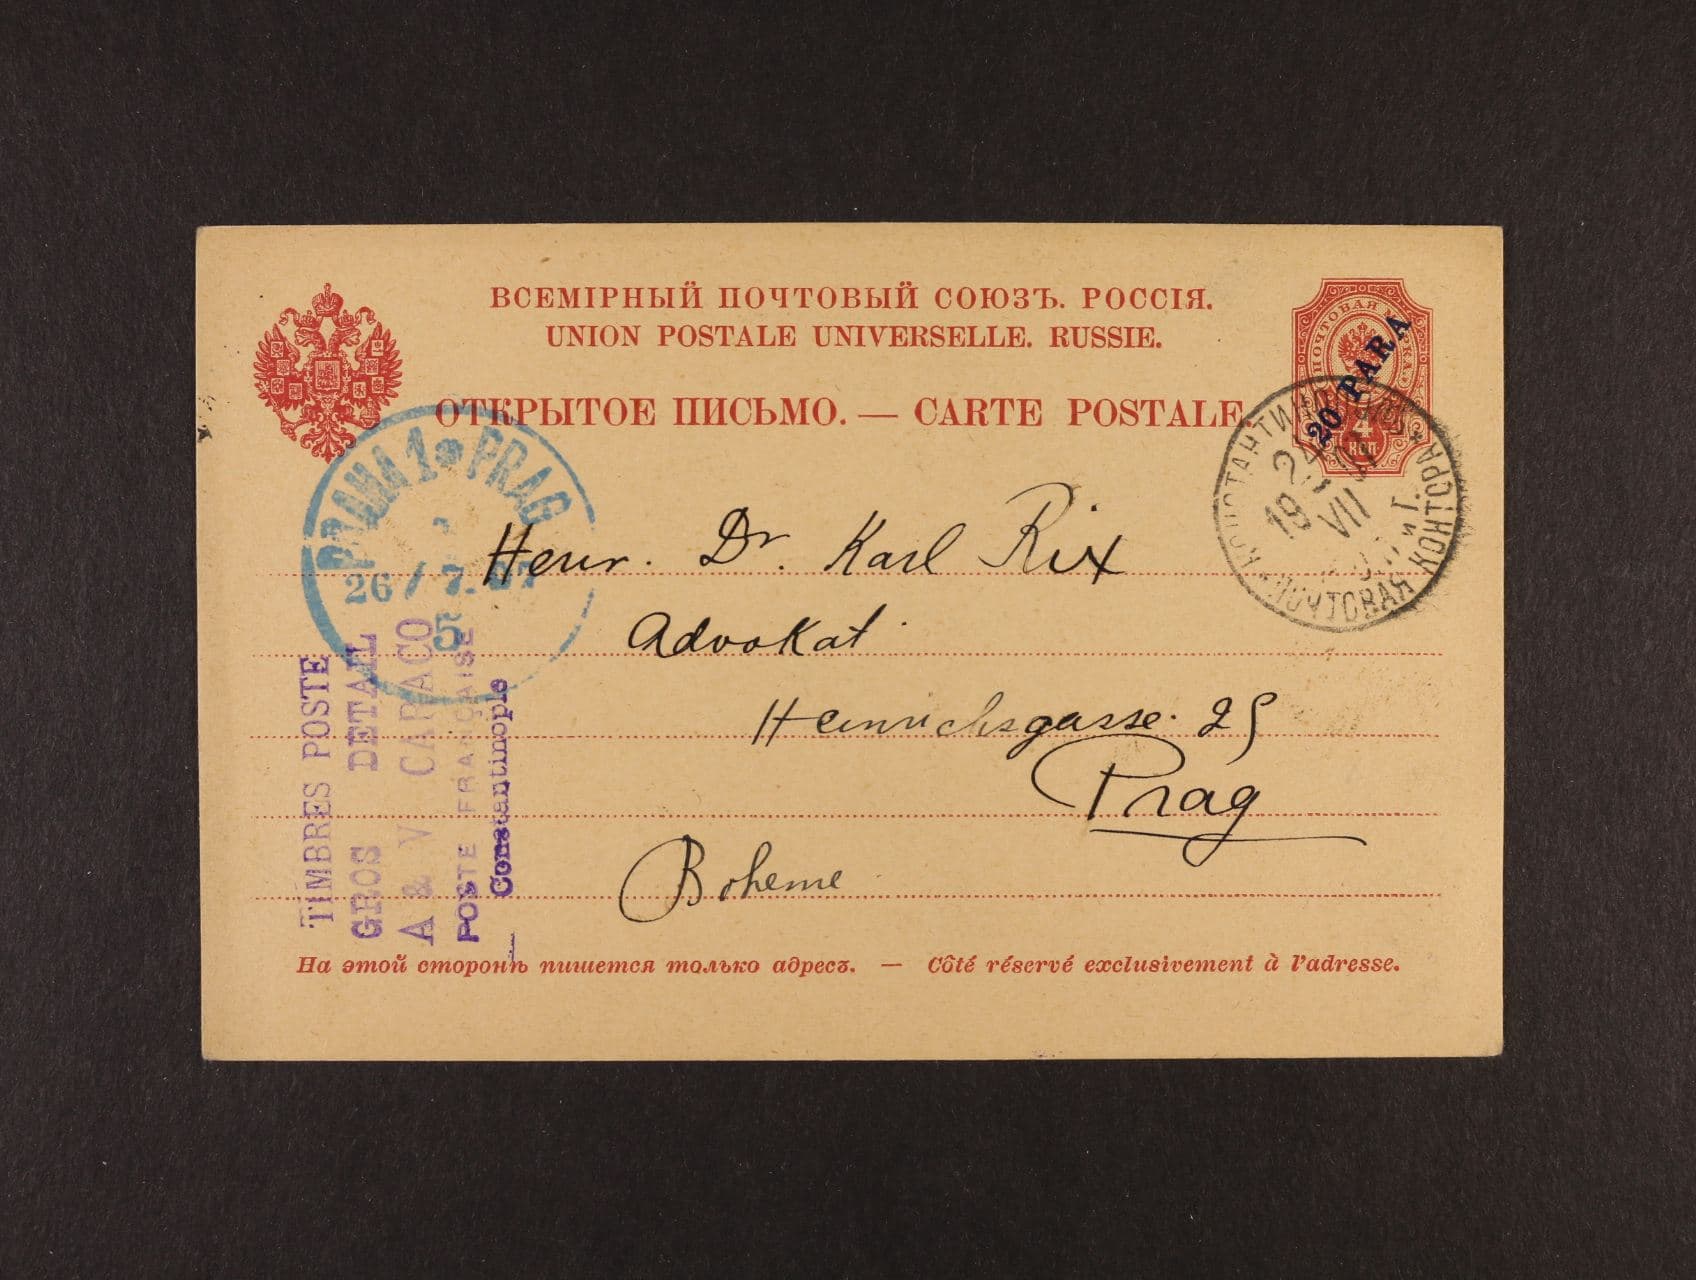 ВСЕМІРНЫЙ ПОЧТОВЫЙ СОЮЗЪ. РОССІЯ.
UNION POSTALE UNIVERSELLE. RUSSIE.
ОТКРЫТОЕ ПИСЬМО. — CARTE POSTALE.
ПОЧТОВАЯ МАРКА
20 PARA
4
КОП.
ПОЧТОВАЯ КОНТОРА
VII
PRAHA 1 * PRAG
26 / 7. 07
5
Herr. Dr. Karl Rix
Advokat
Heinrichsgasse. 25
Prag
Boheme
TIMBRES POSTE
GROS DETAIL
A & V CARACO
POSTE FRANÇAISE
Constantinople
На этой сторонѣ пишется только адресъ. — Côté réservé exclusivement à l'adresse.